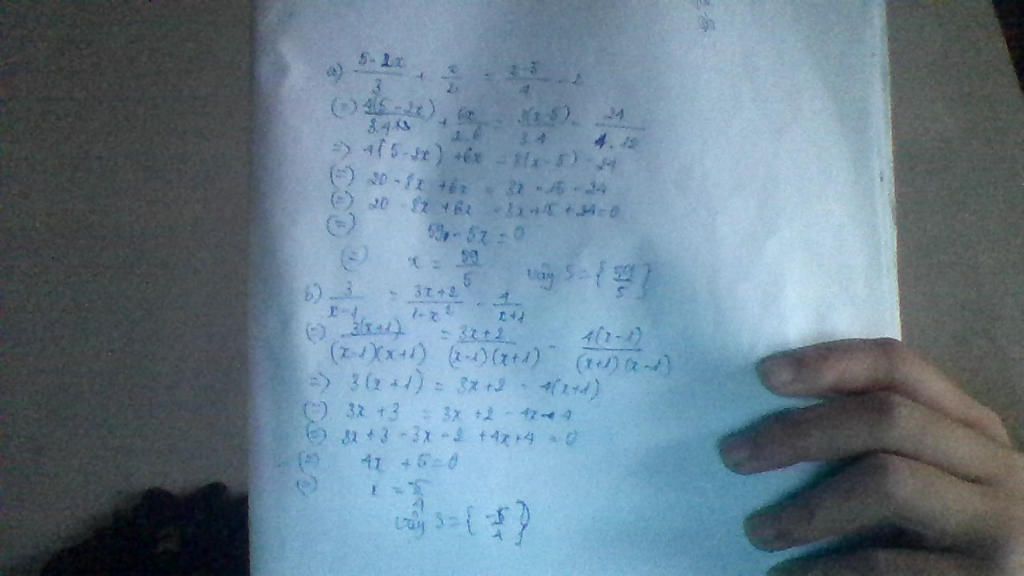 a) (5-2x)/3 + x/2 = (x-5)/4 - 2
(=) 4(5-2x)/3.4 + 6x/2.6 = 3(x-5)/3.4 - 24/
=> 4(5-2x) + 6x = 3(x-5) - 24
(=) 20 - 8x + 6x = 3x - 15 - 24
(=) 20 - 8x + 6x - 3x + 15 + 24 = 0
(=) 59 - 5x = 0
(=) x = 59/5 vậy S = { 59/5 }
b) 3/(x-1) = (3x+2)/(1-x²) - 4/(x+1)
(=) 3(x+1)/(x-1)(x+1) = (3x+2)/(x-1)(x+1) - 4(x-1)/(x+1)(x-1)
=> 3(x+1) = 3x+2 - 4(x+1)
(=) 3x + 3 = 3x + 2 - 4x - 4
(=) 3x + 3 - 3x - 2 + 4x + 4 = 0
(=) 4x + 5 = 0
x = -5/4
vậy S = { -5/4 }